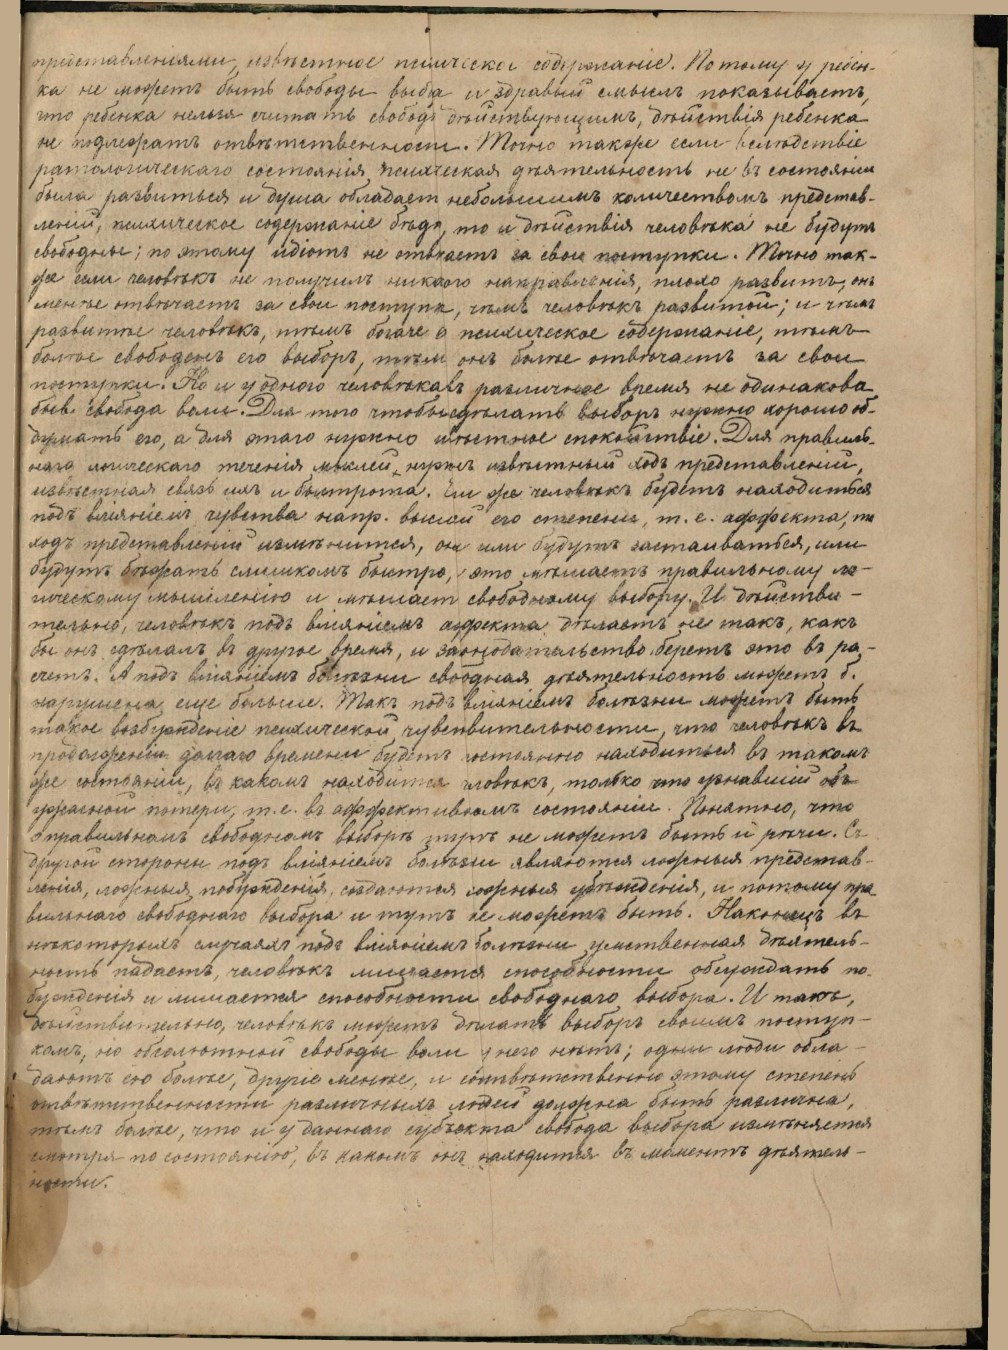 представленіями, извѣстное психическое содержаніе. Потому у ребен-
ка не можетъ быть свободы выбра и здравый смыслъ показываетъ,
что ребенка нельзя считать свобод дѣйствующимъ, дѣйствія ребенка
не подлежатъ отвѣтственности. Точно также если вслѣдствіе
патологическаго состоянія психическая дѣятельность не въ состояніи
была развиться и душа обладает небольшимъ количествомъ представ-
леній, психическое содержаніе бѣдн, то и дѣйствія человѣка не будутъ
свободны; по этому идіотъ не отвѣчаетъ за свои поступки. Точно так-
же если человѣкъ не получилъ никакого направленія, плохо развитъ, онъ
менѣе отвѣчаетъ за свои поступк, чѣмъ человѣкъ развитой; и чѣмъ
развитѣе человѣкъ, тѣмъ богаче е психическое содержаніе, тѣмъ
болѣе свободенъ его выборъ, тѣм онъ болѣе отвѣчаетъ за свои
поступки. Но и у одного человѣка въ различное время не одинакова
быв. свобода воли. Для того чтобы сдѣлать выборъ нужно хорошо об-
думать его, а для этаго нужно извѣстное спокойствіе. Для правиль-
наго логическаго теченія мыслей нуженъ извѣстный ходъ представленій,
извѣстная связь ихъ и быстрота. Если же человѣкъ будетъ находиться
подъ вліяніемъ чувства напр. высшей его степени, т. е. аффекта, то
ходъ представленій измѣнится, они или будутъ застаиваться, или
будутъ бѣжать слишкомъ быстро, это мѣшаетъ правильному ло-
гическому мышленію и мѣшает свободному выбору. И дѣйстви-
тельно, человѣкъ подъ вліяніемъ аффекта дѣлаетъ не такъ, какъ
бы онъ сдѣлалъ въ другое время, и законодательство беретъ это въ ра-
счетъ. А подъ вліяніемъ болѣзни свободная дѣятельность можетъ б.
нарушена еще больше. Такъ подъ вліяніемъ болѣзни можетъ быть
такое возбужденіе психической чувствительности, что человѣкъ въ
продолженіи долгаго времени будетъ постоянно находиться въ такомъ
же состояніи, въ какомъ находится человѣкъ, только что узнавшій объ
ужасной потери, т. е. въ аффективномъ состояніи. Понятно, что
о правильномъ свободномъ выборѣ тутъ не можетъ быть и рѣчи. Съ
другой стороны подъ вліяніемъ болѣзни являются ложныя представ-
ленія, ложныя побужденія, создаются ложныя убѣжденія, и потому пра
вильнаго свободнаго выбора и тутъ не можетъ быть. Наконецъ въ
нѣкоторыхъ случаяхъ подъ вліяніемъ болѣзни умственная дѣятель-
ность падаетъ, человѣкъ лишается способности обсуждать по-
бужденія и лишается способности свободнаго выбора. И такъ,
дѣйствительно, человѣкъ можетъ дѣлать выборъ своимъ поступ-
камъ, но обсолютной свободы воли у него нѣтъ; одни люди обла-
даютъ ею болѣе, другіе менѣе, и соотвѣтственно этому степень
отвѣтственности различныхъ людей должна быть различна,
тѣмъ болѣе, что и у даннаго субъекта свобода выбора измѣняется
смотря по состоянію, въ какомъ онъ находится въ моментъ дѣятель-
ности.